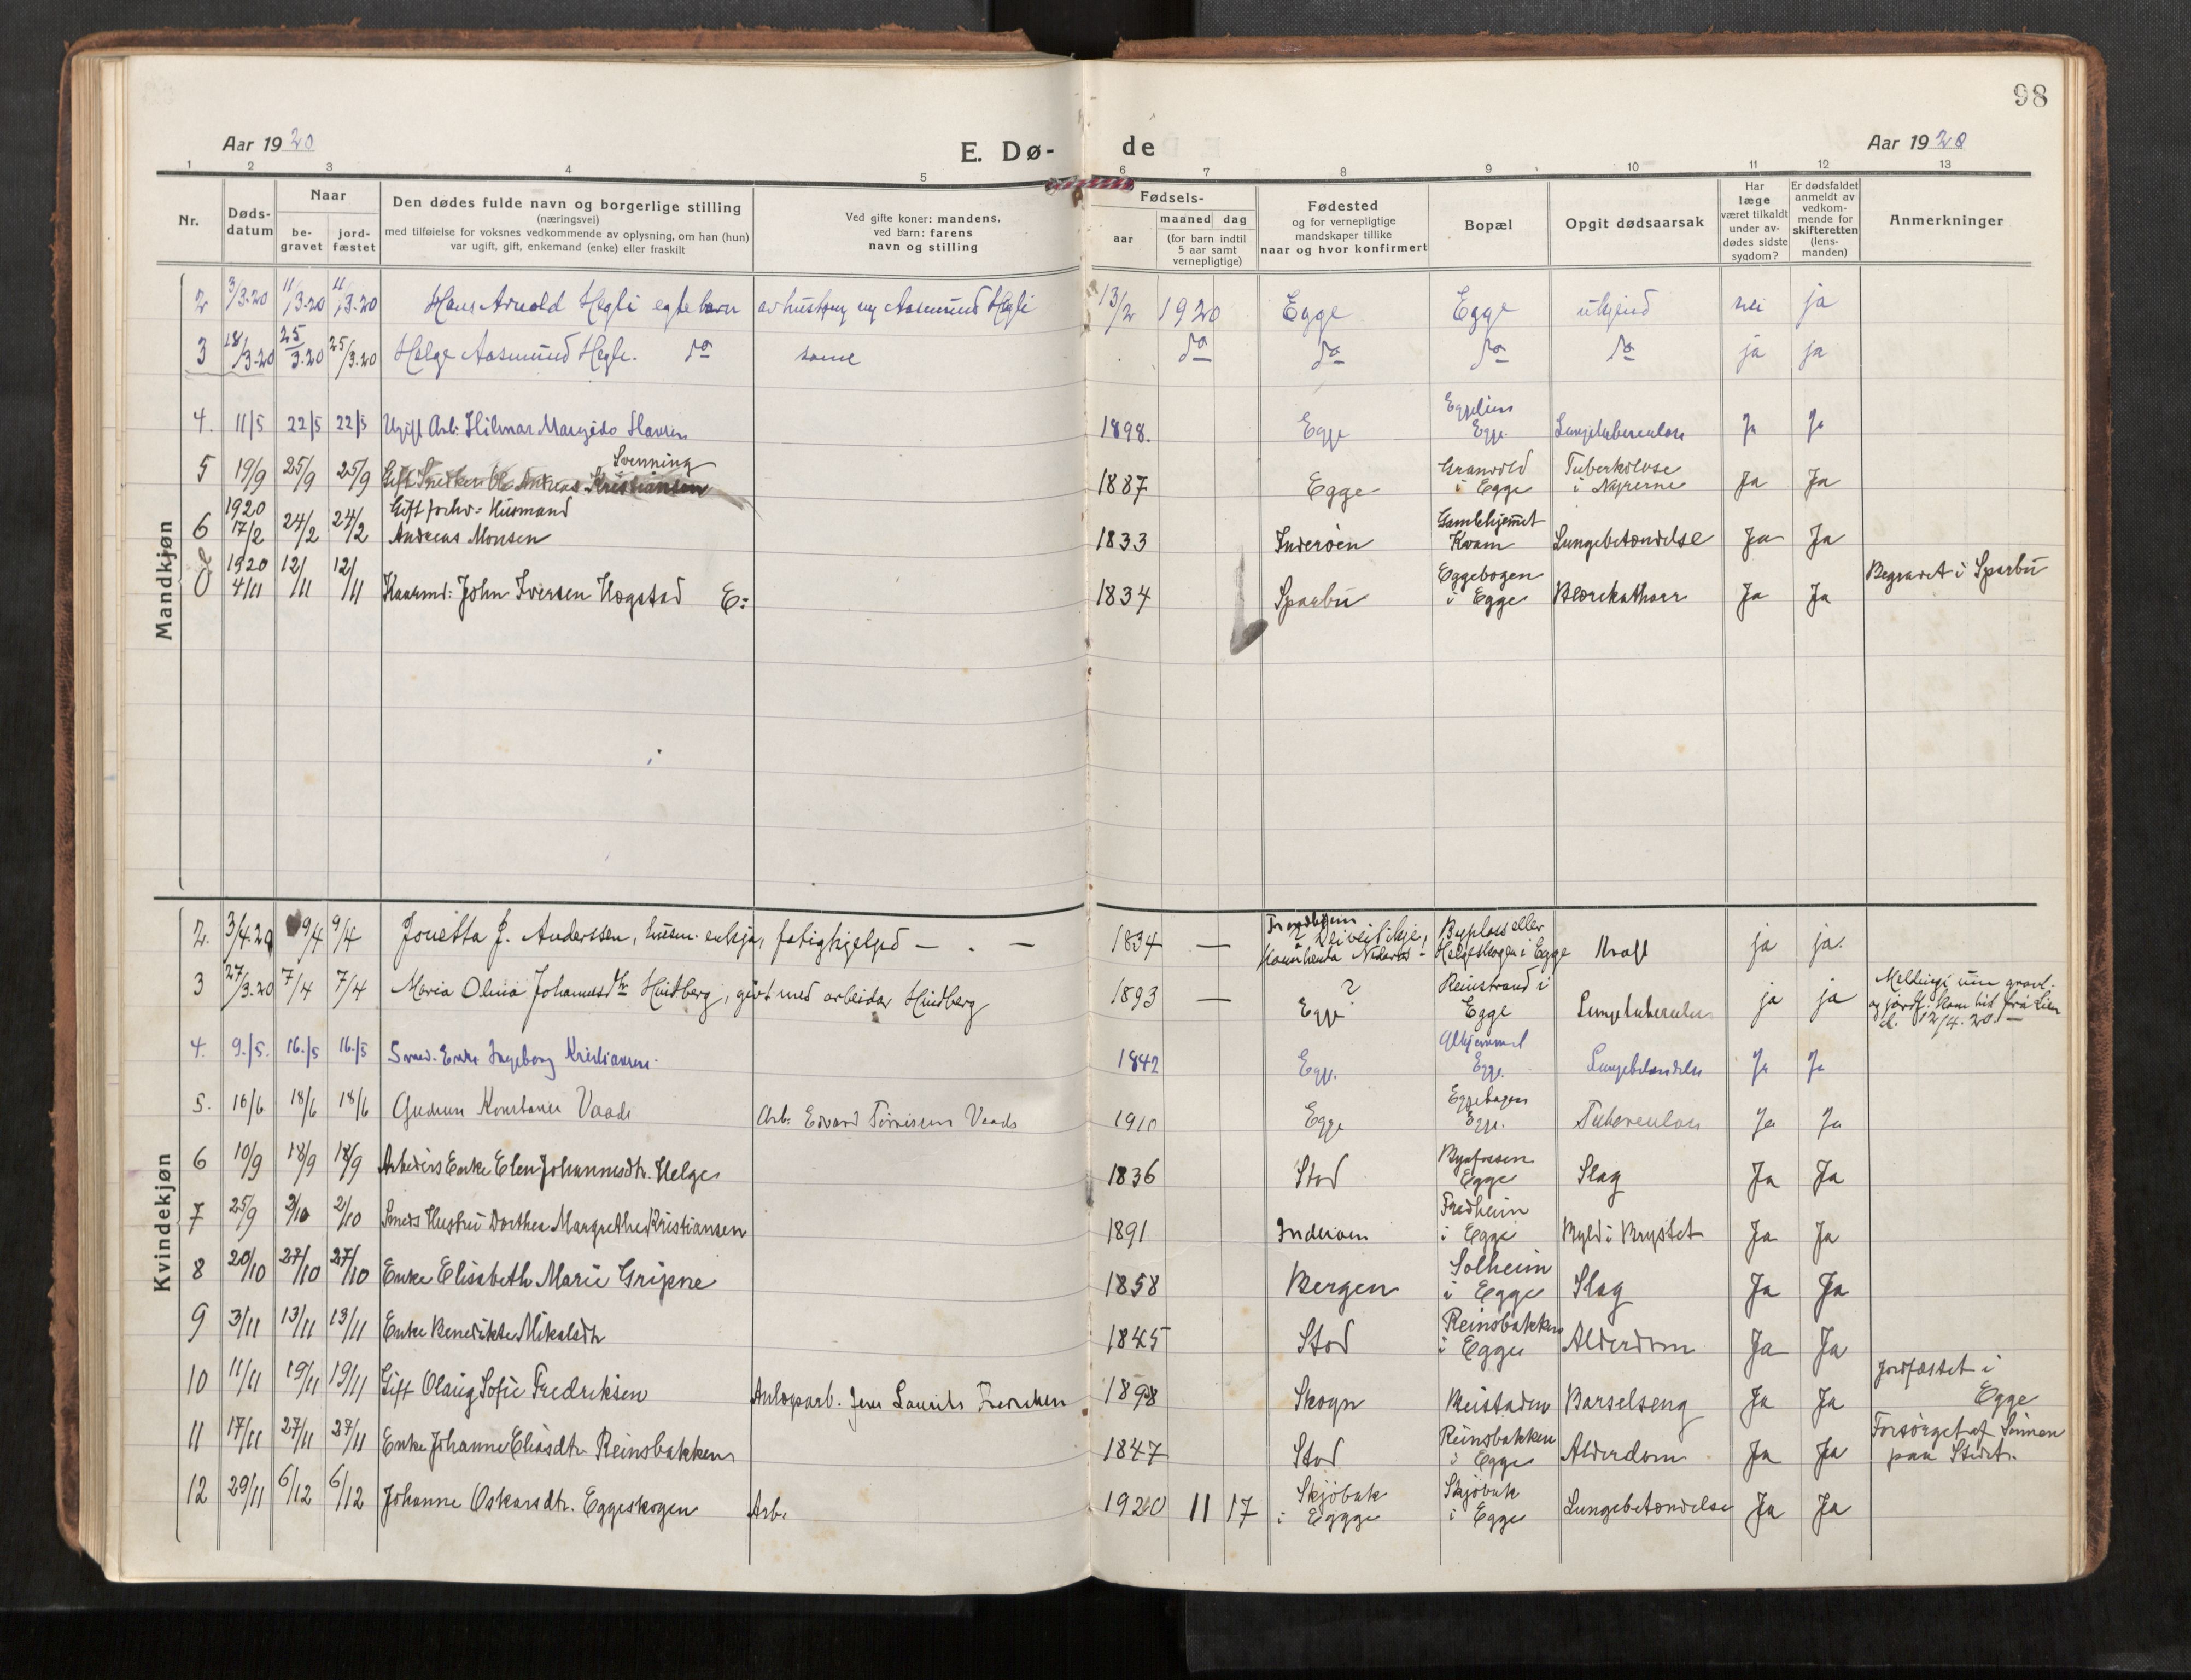 98
Aar 1920
E. Dø-
de
Aar 1920
1 2 3 4 5 6 7 8 9 10 11 12 13
Nr.
Døds-
datum
Naar
be-
gravet
jord-
fæstet
Den dødes fulde navn og borgerlige stilling
(næringsvei)
med tilføielse for voksnes vedkommende av oplysning, om han (hun)
var ugift, gift, enkemand (enke) eller fraskilt
Ved gifte koner: mandens,
ved barn: farens
navn og stilling
Fødsels-
aar
maaned dag
(for barn indtil
5 aar samt
vernepligtige)
Fødested
og for vernepligtige
mandskaper tillike
naar og hvor konfirmert
Bopæl
Opgit dødsaarsak
Har
læge
været tilkaldt
under av-
dødes sidste
sygdom?
Er dødsfaldet
anmeldt av
vedkom-
mende for
skifteretten
(lens-
manden)
Anmerkninger
Mandkjøn
2 3/3.20 11/3.20 11/3.20 Hans Arnold Hegli egte barn av hustru og Aasmund Hegli 13/2 1920 Egge Egge ukjend nei ja
3 18/3.20 25/3.20 25/3.20 Helge Aasmund Hegle. do same do do do do ja ja
4. 11/5 22/5 22/5 Ugift Arb. Hilmar Margido 1898. Egge Egge. Lungetuberculose Ja Ja
5 19/9 25/9 25/9 Gift Snedker Ole Andreas Kristiansen Svenning 1887 Egge Granvold i Egge Tuberkulose i Nyrerne Ja Ja
6 1920 17/2 24/2 24/2 Gift forhv. Husmand
Andreas Monsen 1833 Inderøen Gamlehjemmet Kvam Lungebetændelse Ja Ja
8 1920 4/11 12/11 12/11 Kaarmd: John Iversen Hogstad E: 1834 Sparbu Eggebogen i Egge Blærekatharr Ja Ja Begravet i Sparbu
Kvindekjøn
2. 3/4.20 9/4 9/4 Jonetta J. Anderssen, husm. enkja, fatighjelped — . — 1834 — Trondhjem Byplass eller Helgeskogen i Egge Kraft ja ja.
3 27/3.20 7/4 7/4 Maria Olina Johannesdtr Hindberg, givt med arbeidar Hindberg 1893 — ? Egge Reinstrand i Egge Lungetuberculos ja ja Meldingi um gravf. og jordf. kom hit frå Lien d. 12/4. 20. —
4. 9./5. 16./5 16./5 Smed. Enke Ingeborg Kristiansen. 1842 Egge. Egge. Lungebetændelse Ja Ja
5. 16/6 18/6 18/6 Gudrun Konstanse Vaade Arb. Edvard Vaade 1910 Egge Eggebogen Egge. Tuberculose Ja Ja
6 10/9 18/9 18/9 Arbeiders Enke Elen Johannesdtr. Helge 1836 Stod Byafossen Egge Slag Ja Ja
7 25/9 2/10 2/10 Smeds Hustru Dorthea Margrethe Kristiansen 1891 Inderøen Fredheim i Egge Byld i Brystet Ja Ja
8 20/10 27/10 27/10 Enke Elisabeth Marie Gripne 1858 Bergen Solheim i Egge Slag Ja Ja
9 3/11 13/11 13/11 Enke Benedikte Mikalsdtr 1845 Stod Reinsbakken i Egge Alderdom Ja Ja
10 11/11 19/11 19/11 Gift Olaug Sofie Fredriksen Anlægsarb. Jens Laurits Fredriksen 1898 Skogn Beistaden Barselseng Ja Ja Jordfæstet i Egge
11 17/11 27/11 27/11 Enke Johanne Eliasdtr. Reinsbakken 1847 Stod Reinsbakken i Egge Alderdom Ja Ja Forsørget af Sønnen paa Stedet.
12 29/11 6/12 6/12 Johanne Oskarsdtr. Eggeskogen Arb. 1920 11 17 Skjøbak i Eggge Skjøbak i Egge Lungebetændelse Ja Ja